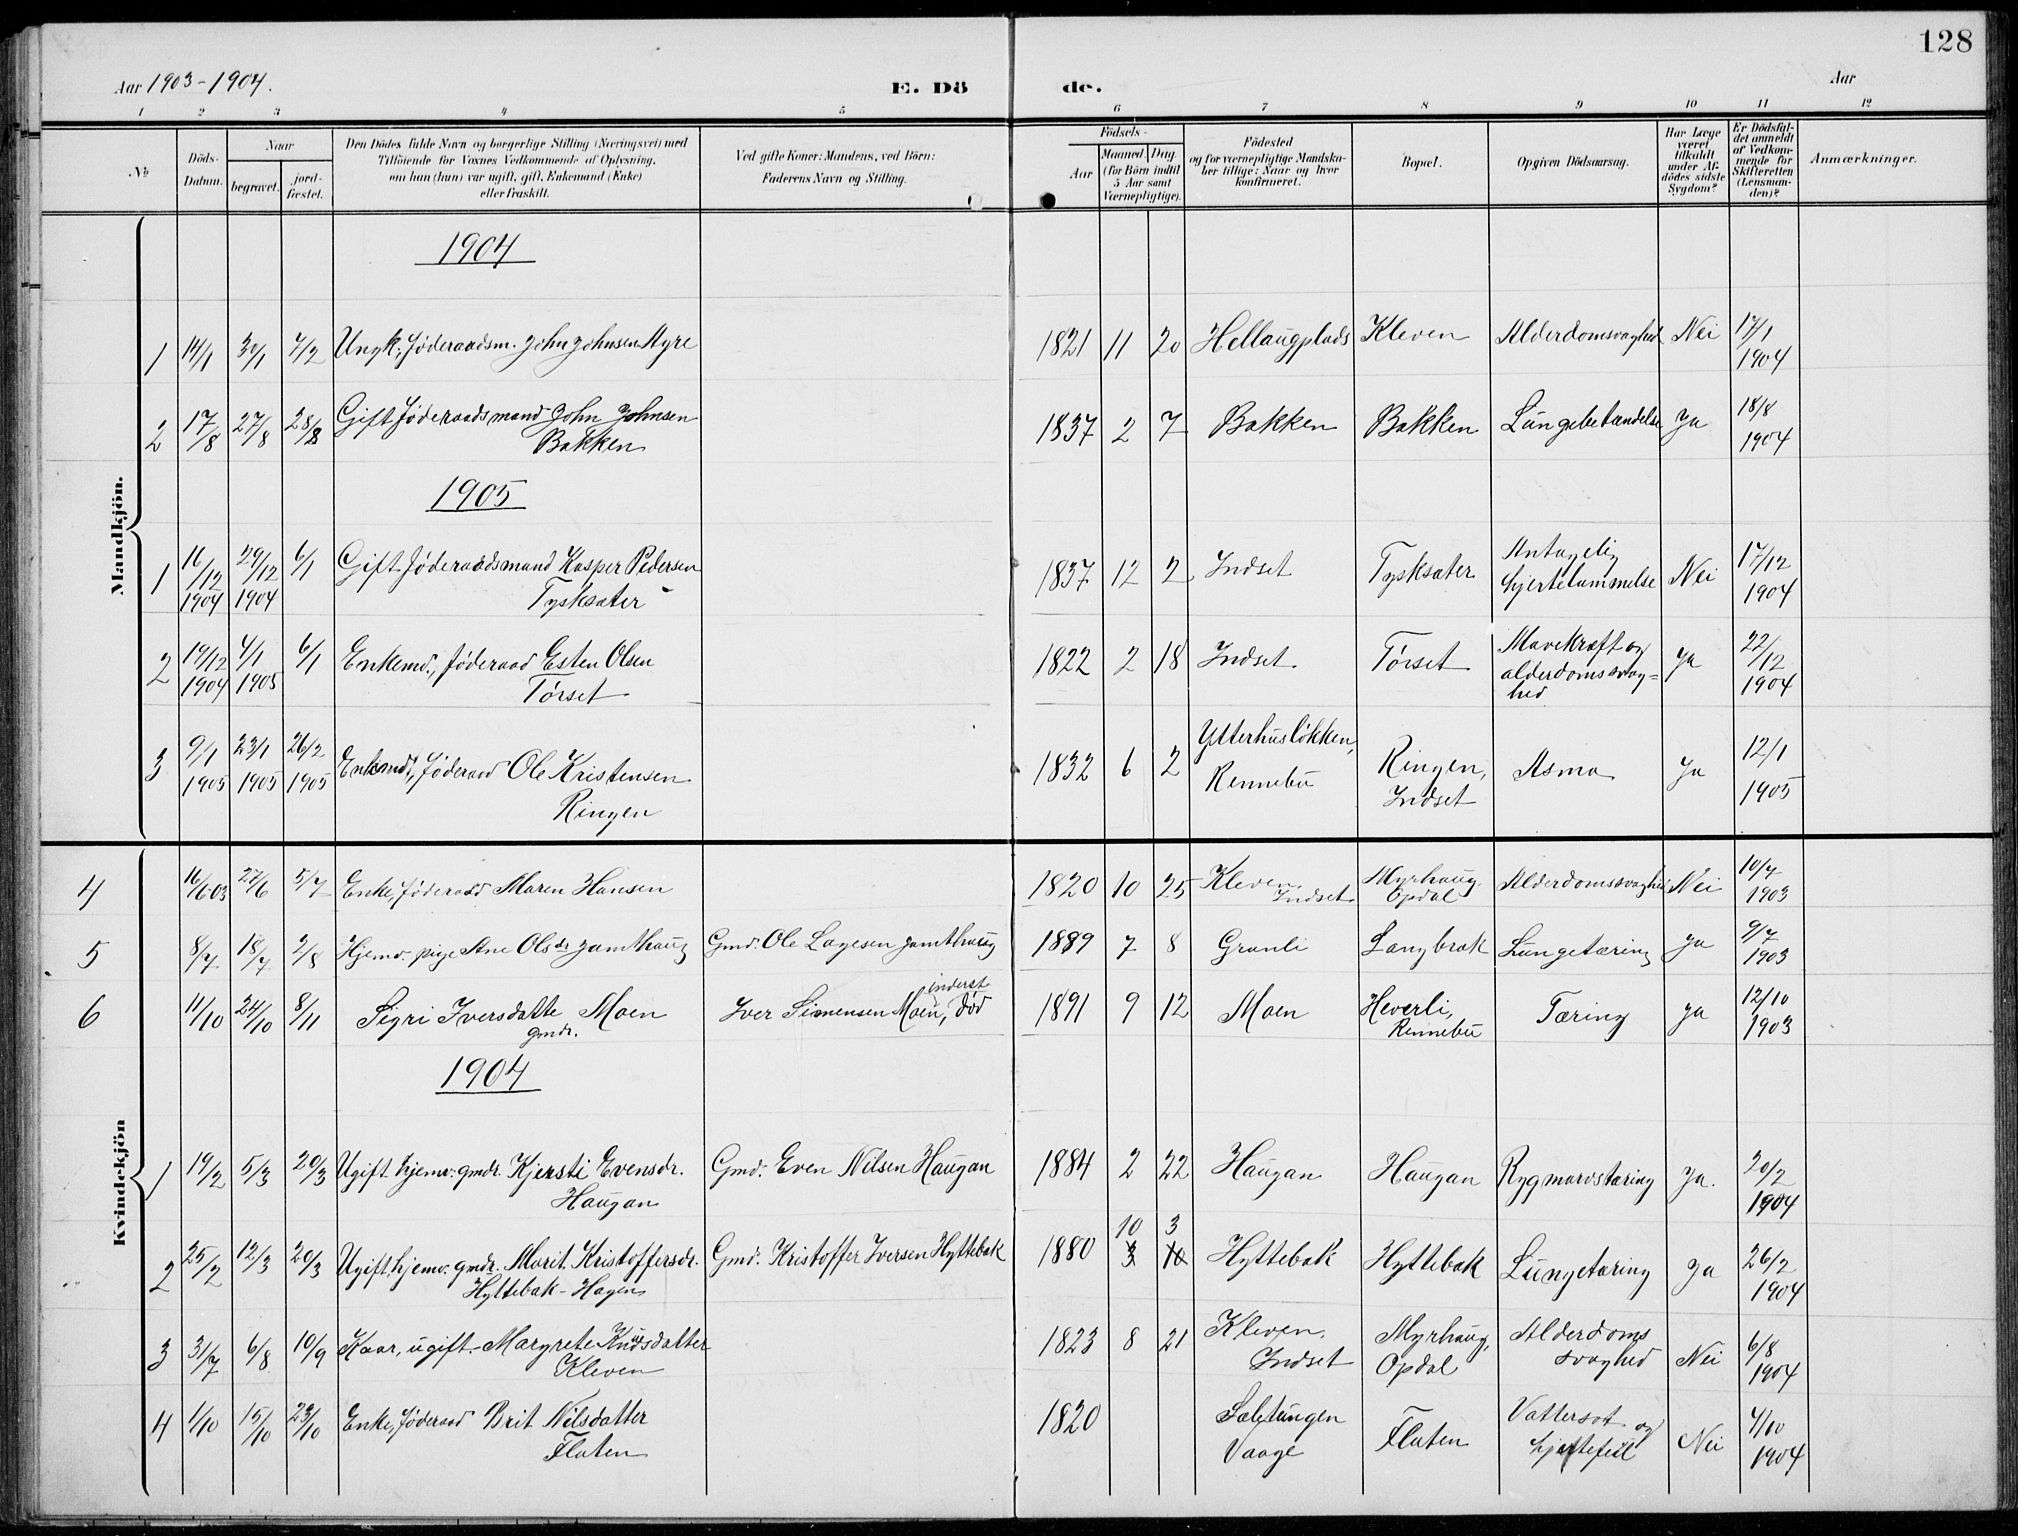 128
Aar 1903-1904.
E. Dö
de.
Aar
1 2 3 4 5 6 7 8 9 10 11 12
No
Döds-
Datum.
Naar
begravet.
jord-
fæstet.
Den Dödes fulde Navn og borgerlige Stilling (Næringsvei) med
Tilföiende for Voxnes Vedkommende af Oplysning,
om han (hun) var ugift, gift, Enkemand (Enke)
eller fraskilt.
Ved gifte Koner: Mandens, ved Börn:
Faderens Navn og Stilling.
Födsels-
Aar
Maaned Dag
(for Börn indtil
5 Aar samt
Værnepligtige).
Födested
og for værnepligtige Mandska-
ber tillige: Naar og hvor
konfirmeret.
Bopæl.
Opgiven Dödsaarsag.
Har Læge
været
tilkaldt
under Af-
dödes sidste
Sygdom?
Er Dödsfal-
det anmeldt
af Vedkom-
mende for
Skifteretten
(Lensman-
den)?
Anmærkninger.
Mandkjön.
1904
1 14/1 30/1 7/2 Ungk., föderaadsm. John Johnsen Myre 1821 11 20 Hellaugplads Kleven Alderdomsvaghed Nei 17/1
1904
2 17/8 27/8 28/8 Gift föderaadsmand John Johnsen
Bakken 1837 2 7 Bakken Bakken Lungebetændelse Ja 18/8
1904
1905
1 16/12
1904 29/12
1904 6/1 Gift föderaadsmand Kasper Pedersen
Tysksæter 1837 12 2 Indset Tysksæter Antagelig
hjertelammelse Nei 17/12
1904
2 19/12
1904 4/1
1905 6/1 Enkemd., föderaad Esten Olsen
Törset 1822 2 18 Indset Törset Mavekræft og
alderdomssvag-
hed Ja 22/12
1904
3 9/1
1905 23/1
1905 26/2
1905 Enkemd., föderaad Ole Kristensen
Ringen 1832 6 2 Ytterhuslökken,
Rennebu Ringen,
Indset Asma Ja 12/1
1905
Kvindekjön
4 16/6 03 27/6 5/7 Enke, föderaad Maren Hansen 1820 10 25 Kleven
Indset Myrhaug
Opdal Alderdomssvaghed Nei 10/7
1903
5 8/7 18/7 2/8 Hjemv. pige Ane Olsdr Jamthaug Gmd. Ole Lagesen Jamthaug 1889 7 8 Granli Langbrak Lungetæring Ja 9/7
1903
6 11/10 24/10 8/11 Sigri Iversdatte Moen
gmdr. Iver Simensen Moen, död
inderst 1891 9 12 Moen Heverli,
Rennebu Tæring Ja 12/10
1903
1904
1 19/2 5/3 20/3 Ugift hjemv. gmdr. Kjersti Evensdr.
Haugan Gmd. Even Nilsen Haugan 1884 2 22 Haugan Haugan Rygmarvstæring Ja. 20/2
1904
2 25/2 12/3 20/3 Ugift, hjemv. gmdr. Marit Kristoffersdr.
Hyttebak-Hagen Gmd. Kristoffer Iversen Hyttebak 1880 10 3
3 10 Hyttebak Hyttebak Lungetæring Ja 26/2
1904
3 31/7 6/8 10/9 Kaar, ugift. Margrete Knudsdatter
Kleven 1823 8 21 Kleven,
Indset Myrhaug,
Opdal Alderdoms
svaghed Nei 6/8
1904
4 1/10 15/10 23/10 Enke, föderaad Brit Nilsdatter
Flaten 1820 Vaage Flaten Vattersot og
hjertefeil Nei 4/10
1904